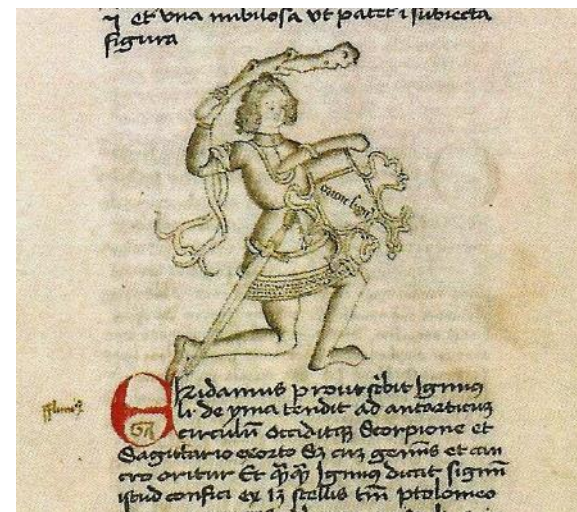 et vna nubilosa vt patet i subiecta
figura
Eridamus prout scbit Iginius
li. de yma tendit ad antarticuz
circulū occiditqz Scorpione et
Sagitario exorto Sz cuz geminis et can
cro oritur Et Iginius dicit signū
istud confici ex 13 stellis tm̄ ptolomeo